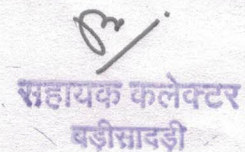 सहायक कलेक्टर
बड़ीसादड़ी